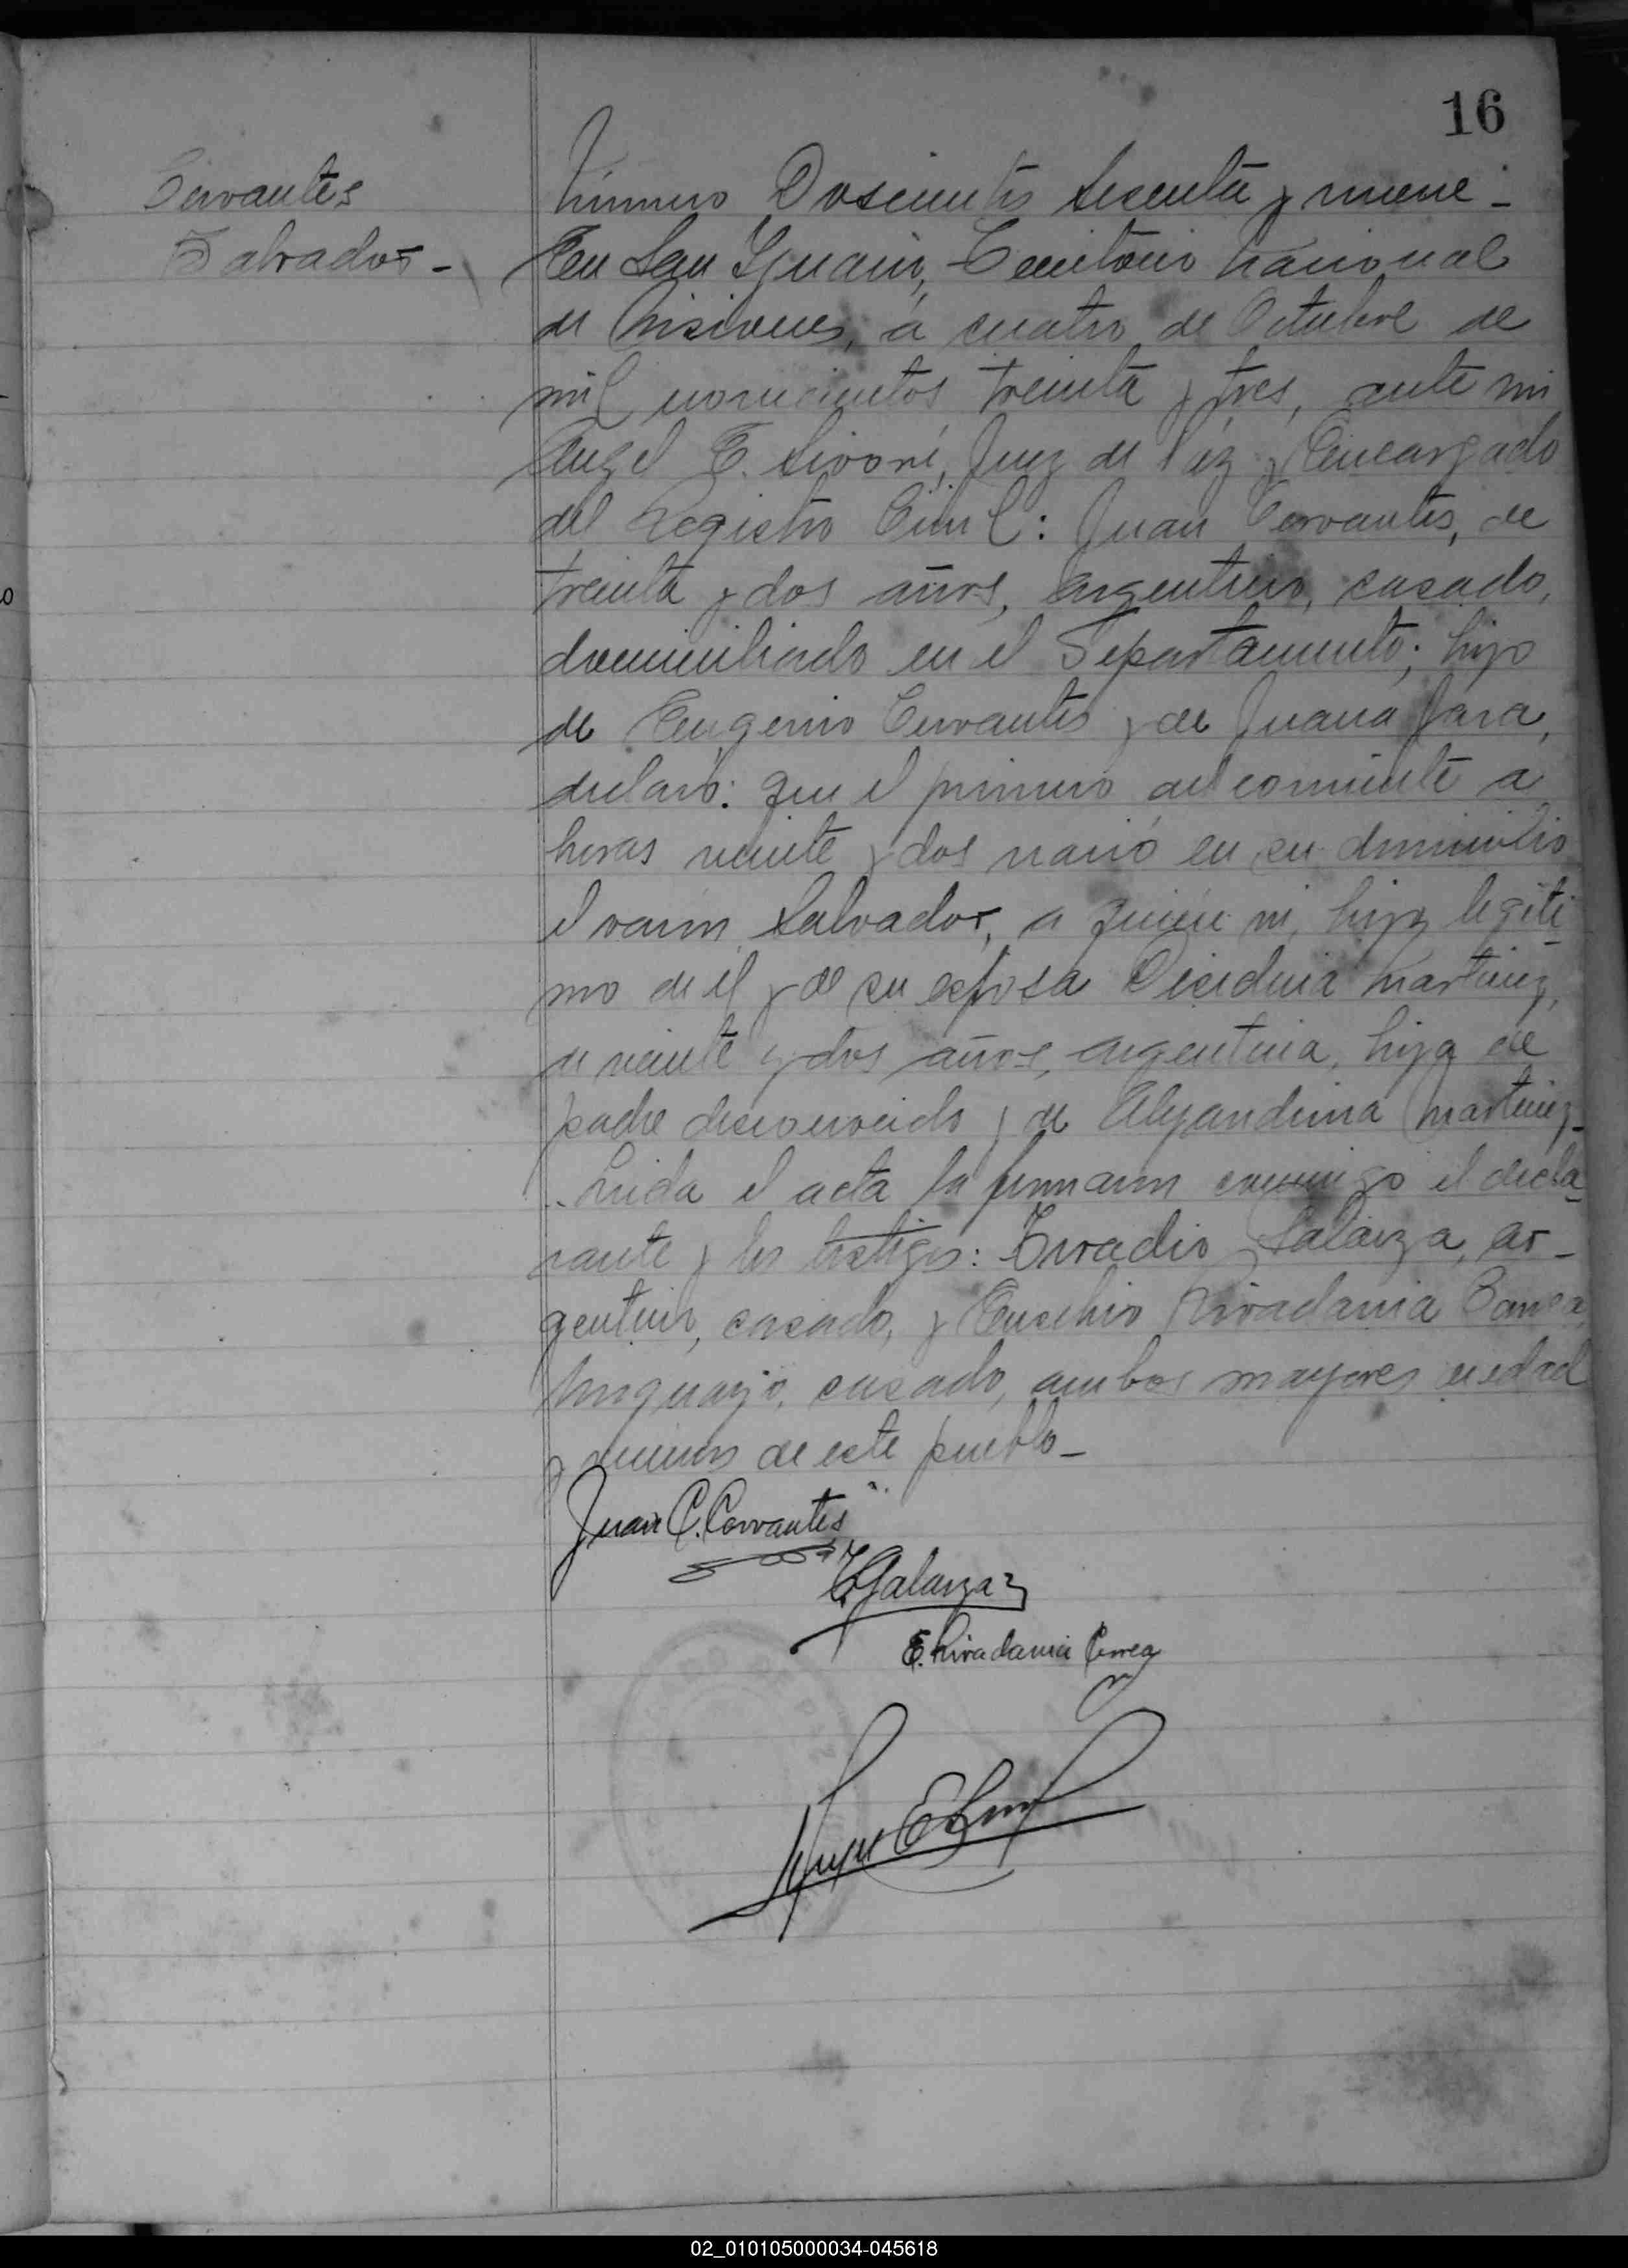 16
Cervantes
Salvador -
Número Doscientos sesenta y nueve -
En San Ignacio, Territorio Nacional
de Misiones, a cuatro de Octubre de
mil novecientos treinta y tres, ante mi
Angel E. Sivori, Juez de Paz y Encargado
del Registro Civil: Juan Cervantes, de
treinta y dos años, argentino, casado,
domiciliado en el Departamento; hijo
de Eugenio Cervantes y de Juana Jara,
declaró: que el primero del corriente a
horas veinte y dos nació en su domicilio
el varón Salvador, a quién vi, hijo legiti
mo de el y de su esposa Martinez,
de veinte y dos años, argentina, hija de
padre desconocido y de Alejandrina Martinez-
Leida el acta la firmaron conmigo el decla-
rante y los testigos: Galarza, ar-
gentino, casado, y Eusebio Rivadavia Correa,
Uruguayo, casado, ambos mayores de edad
y vecinos de este pueblo -
Juan C. Cervantes
T. Galarza
E. Rivadavia Correa
02_010105000034-045618